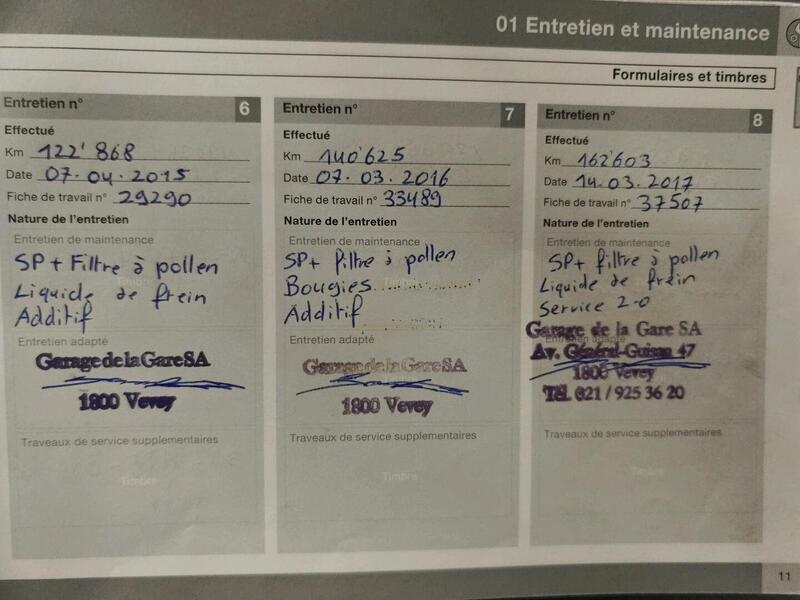 01 Entretien et maintenance
Formulaires et timbres
Entretien n° 6
Effectué
Km 122'868
Date 07.04.2015
Fiche de travail n° 29290
Nature de l'entretien
Entretien de maintenance
SP + Filtre à pollen
Liquide de frein
Additif
Entretien adapté
Garage de la Gare SA
1800 Vevey
Traveaux de service supplementaires
Timbre
Entretien n° 7
Effectué
Km 140'625
Date 07.03.2016
Fiche de travail n° 33489
Nature de l'entretien
Entretien de maintenance
SP + filtre à pollen
Bougies
Additif
Entretien adapté
Garage de la Gare SA
1800 Vevey
Traveaux de service supplementaires
Timbre
Entretien n° 8
Effectué
Km 162'603
Date 14.03.2017
Fiche de travail n° 37507
Nature de l'entretien
Entretien de maintenance
SP + filtre à pollen
Liquide de frein
Service 2-0
Garage de la Gare SA
Entretien adapté
Av. Général-Guisan 47
1800 Vevey
Tél. 021 / 925 36 20
Traveaux de service supplementaires
Timbre
11